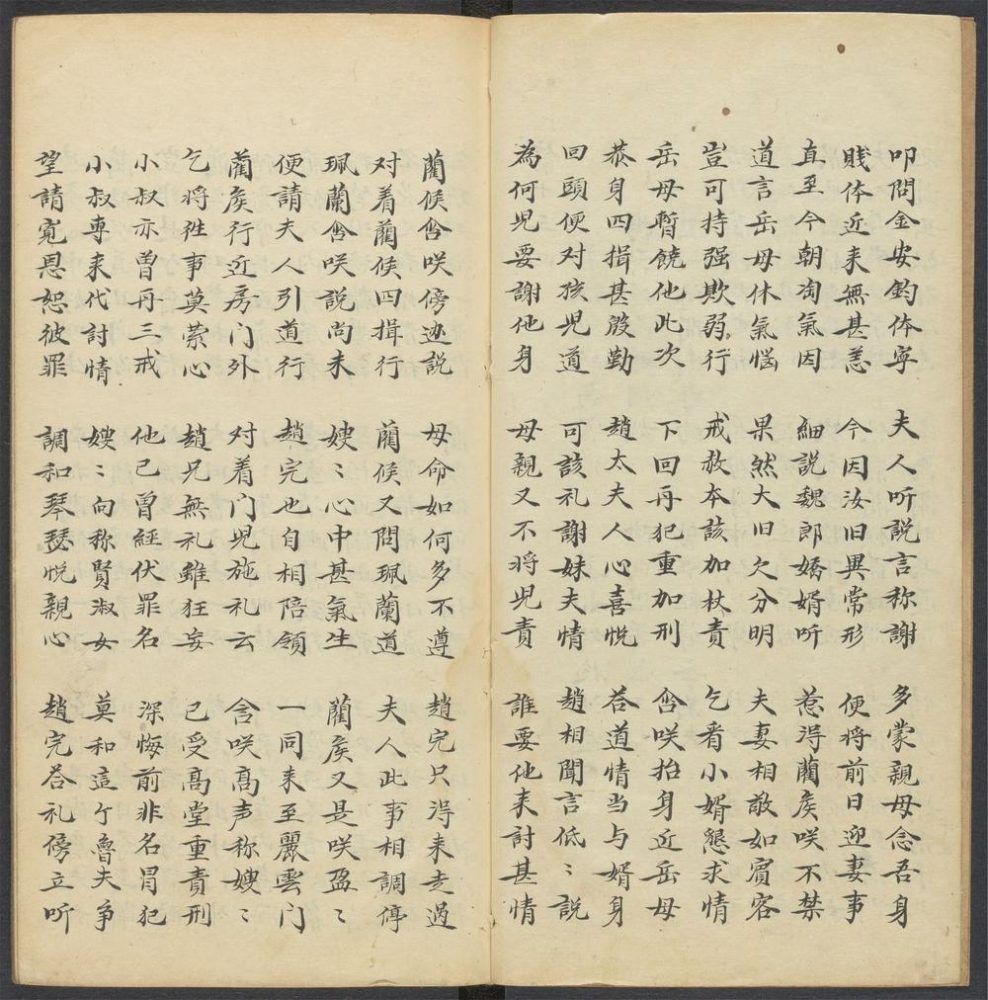 叩問金安鈞体寧 夫人听説言称謝 多蒙親母念吾身
賤体近来無甚恙 今因汝旧異常形 便将前日迎妻事
直至今朝淘氣因 細説魏郎嬌婿听 惹淂藺矦咲不禁
道言岳母休氣惱 果然大旧欠分明 夫妻相敬如賓客
豈可持强欺弱行 戒敖本該加杖責 乞看小婿懇求情
岳母暫饒他此次 下回再犯重加刑 含咲抬身近岳母
恭身四揖甚殷勤 趙太夫人心喜悦 荅道情当与婿身
回頭便对孩児道 可該礼謝妹夫情 趙相聞言低〻説
為何児要謝他身 母親又不将児責 誰要他来討甚情
藺候含咲傍边説 母命如何多不遵 趙完只淂来走過
对着藺候四揖行 藺候又問珮蘭道 夫人此事相調停
珮蘭含咲説尚未 嫂〻心中甚氣生 藺矦又是咲盈〻
便請夫人引道行 趙完也自相陪領 一同来至麗雲门
藺矦行近房门外 对着门児施礼云 含咲高声称嫂〻
乞将徃事莫萦心 趙兄無礼雖狂妄 已受高堂重責刑
小叔亦曽再三戒 他已曽經伏罪名 深悔前非名冐犯
小叔專来代討情 嫂〻向称賢淑女 莫和這个魯夫争
望請寬恩恕彼罪 調和琴瑟悦親心 趙完荅礼傍立听